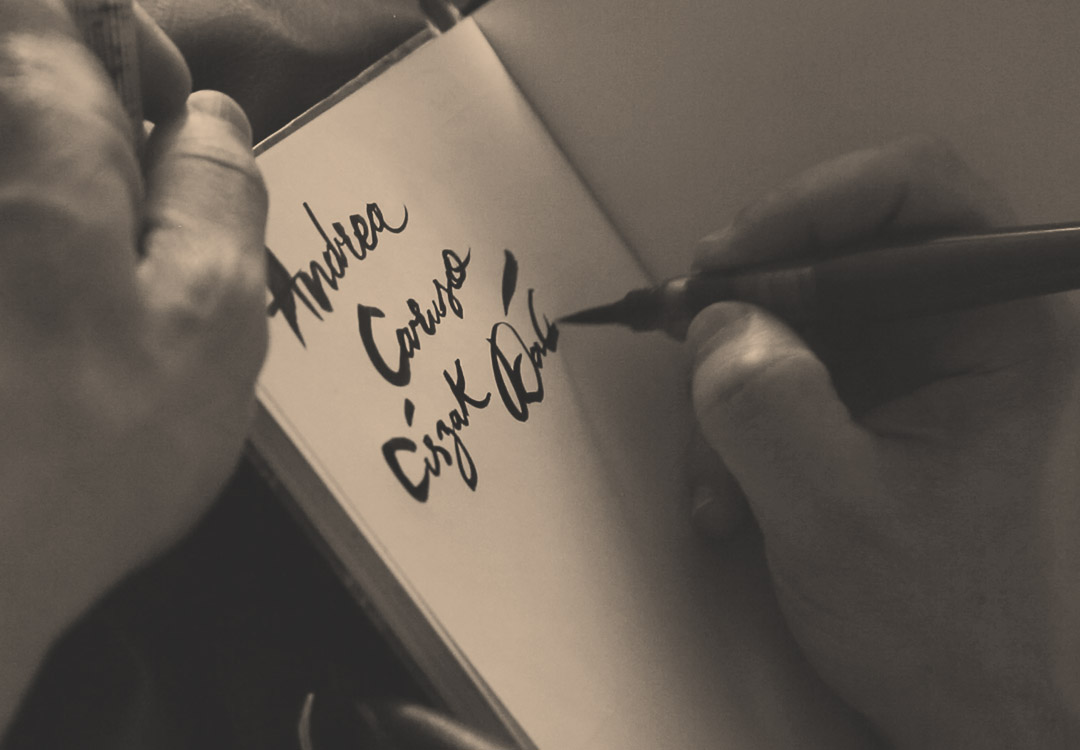 Andrea
Caruso
Ciszak Dal